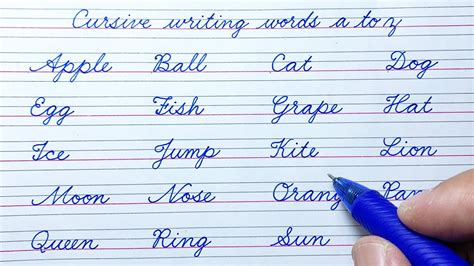 Cursive writing words a to z
Apple Ball Cat Dog
Egg Fish Grape Hat
Ice Jump Kite Lion
Moon Nose Orang Pan
Queen Ring Sun